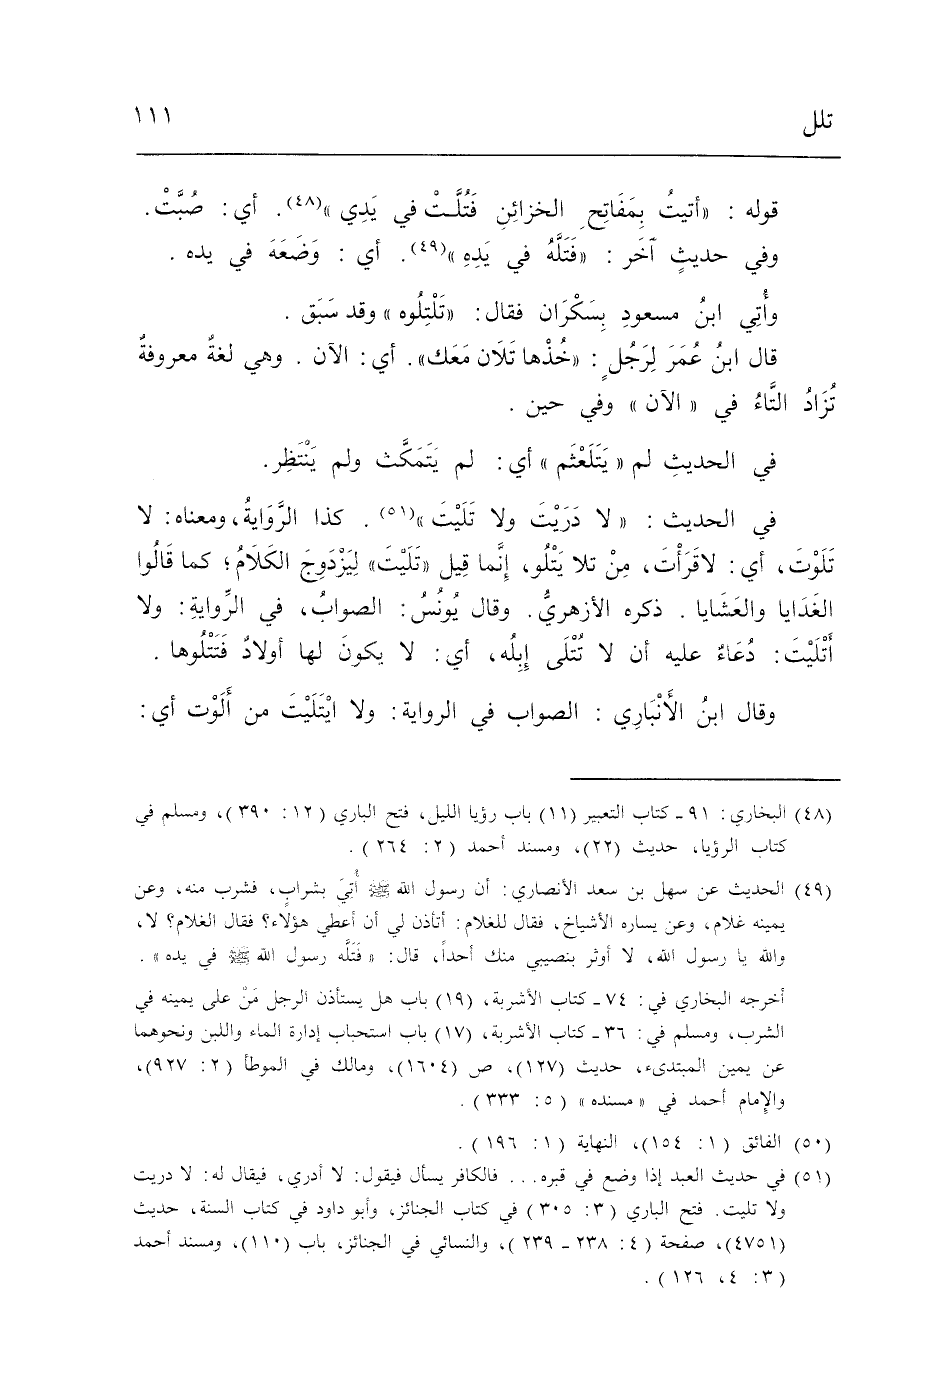 تلل ١١١
قوله : «أتيتُ بِمَفَاتِحِ الخزائِنِ فَتُلَّتْ في يَدِي »(٤٨). أي: صُبَّتْ.
وفي حديثٍ آخَر : «فَتَلَّهُ في يَدِهِ »(٤٩). أي : وَضَعَهَ في يده .
وأُتِي ابنُ مسعودِ بِسَكْرَان فقال: «تَلْتِلُوه» وقد سَبَق .
قال ابنُ عُمَرَ لِرَجُلٍ : «خُذْها تَلَان مَعَك». أي: الآن . وهي لغةٌ معروفةٌ
تُزَادُ التَّاءُ في « الآن» وفي حين .
في الحديثِ لم « يَتَلَعْثَم » أي: لم يَتَمَكَّث ولم يَنْتَظِر.
في الحديث : « لا دَرَيْتَ ولا تَلَيْتَ »(٥١) . كذا الرَّوَايةُ، ومعناه: لا
تَلَوْتَ، أي: لاقَرَأْتَ، مِنْ تلا يَتْلُو، إنَّما قِيل «تَلَيْتَ» لِيَزْدَوِجَ الكَلَامُ؛ كما قَالُوا
الغَدَايا والعَشَايا . ذكره الأزهريُّ. وقال يُونُسُ: الصوابُ، في الرِّوايةِ: ولا
أَتْلَيْتَ: دُعَاءٌ عليه أن لا تُتْلَى إبِلُه، أي: لا يكونَ لها أولادٌ فَتَتْلُوها .
وقال ابنُ الأَنْبَارِي : الصواب في الرواية: ولا ايْتَلَيْتَ من أَلَوْت أي:
(٤٨) البخاري: ٩١ ـ كتاب التعبير (١١) باب رؤيا الليل، فتح الباري (١٢: ٣٩٠)، ومسلم في
كتاب الرؤيا، حديث (٢٢)، ومسند أحمد (٢: ٢٦٤) .
(٤٩) الحديث عن سهل بن سعد الأنصاري: أن رسول الله ﷺ أُتِيَ بشرابٍ، فشرب منه، وعن
يمينه غلام، وعن يساره الأشياخ، فقال للغلام: أتأذن لي أن أعطي هؤلاء؟ فقال الغلام؟ لا،
والله يا رسول الله، لا أوثر بنصيبي منك أحداً، قال: « فَتَلَّه رسول الله ﷺ في يده» .
أخرجه البخاري في: ٧٤ ـ كتاب الأشربة، (١٩) باب هل يستأذن الرجل مَنْ على يمينه في
الشرب، ومسلم في: ٣٦ ـ كتاب الأشربة، (١٧) باب استحباب إدارة الماء واللبن ونحوهما
عن يمين المبتدىء، حديث (١٢٧)، ص (١٦٠٤)، ومالك في الموطأ (٢: ٩٢٧)،
والإمام أحمد في «مسنده» (٥: ٣٣٣) .
(٥٠) الفائق (١: ١٥٤)، النهاية (١: ١٩٦) .
(٥١) في حديث العبد إذا وضع في قبره... فالكافر يسأل فيقول: لا أدري، فيقال له: لا دريت
ولا تليت. فتح الباري (٣: ٣٠٥) في كتاب الجنائز، وأبو داود في كتاب السنة، حديث
(٤٧٥١)، صفحة (٤: ٢٣٨ ـ ٢٣٩)، والنسائي في الجنائز، باب (١١٠)، ومسند أحمد
(٣: ٤، ١٢٦) .